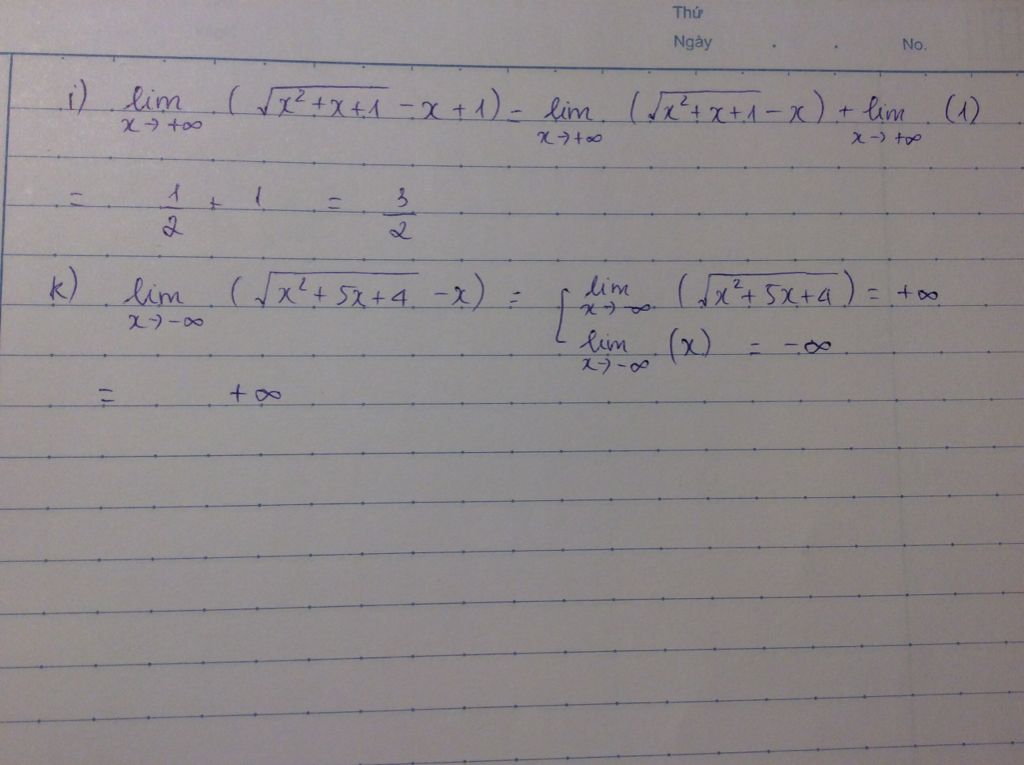 Thứ
Ngày . . No.
i) lim x→+∞ (√(x²+x+1) - x + 1) = lim x→+∞ (√(x²+x+1) - x) + lim x→+∞ (1)
= 1/2 + 1 = 3/2
k) lim x→-∞ (√(x²+5x+4) - x) = { lim x→-∞ (√(x²+5x+4)) = +∞
lim x→-∞ (x) = -∞
= +∞